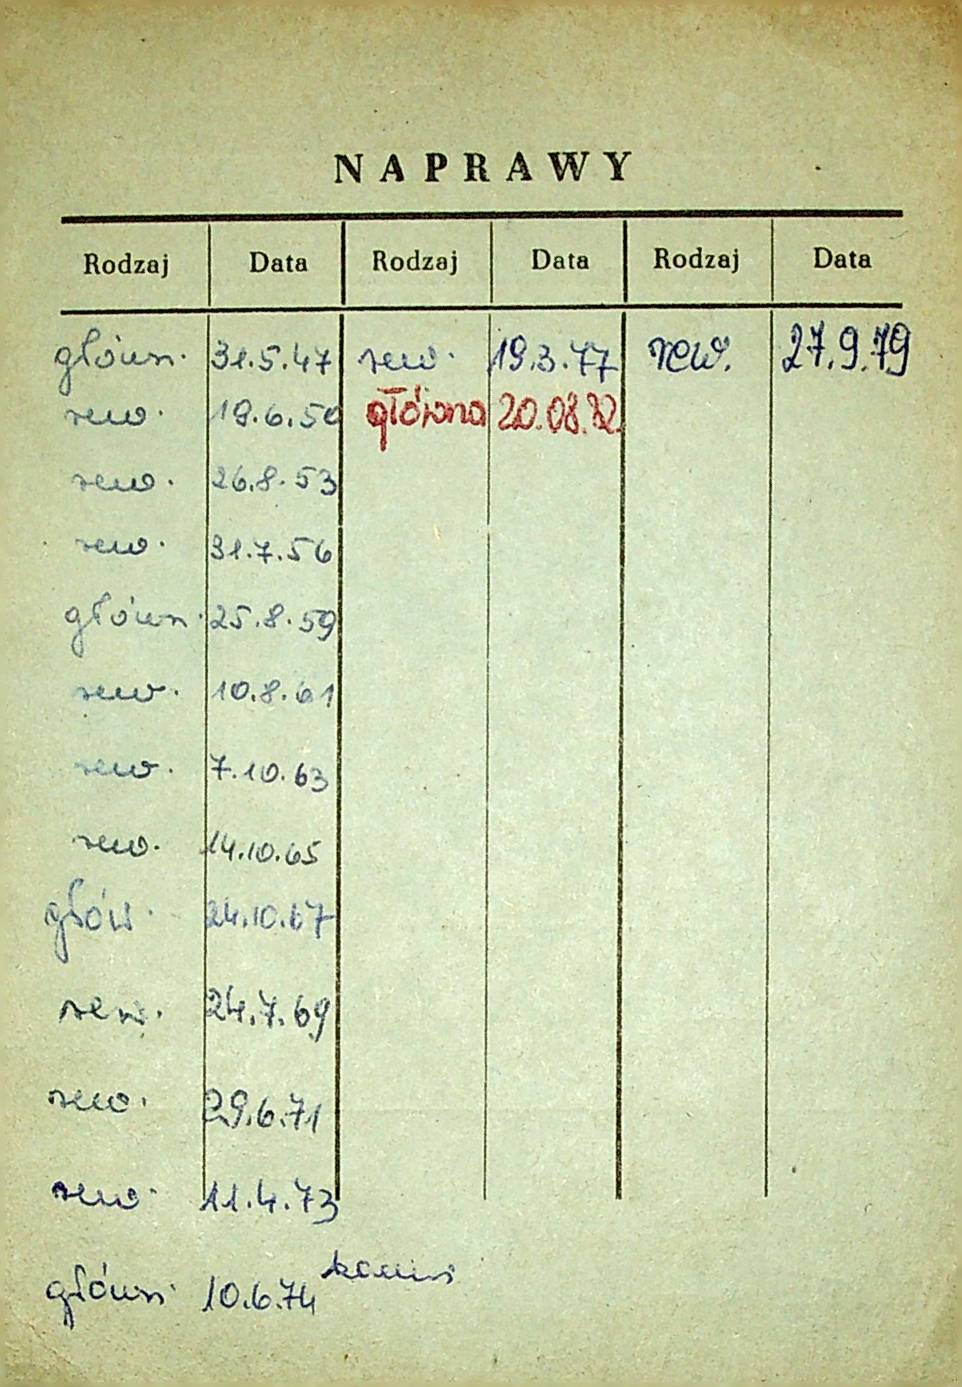 NAPRAWY
Rodzaj Data Rodzaj Data Rodzaj Data
główn. 31.5.47 rew. 19.3.77 rew. 27.9.79
rew. 18.6.50 główna 20.08.82.
rew. 26.8.53
rew. 31.7.56
główn. 25.8.59
rew. 10.8.61
rew. 7.10.63
rew. 14.10.65
głów. 24.10.67
rew. 24.7.69
rew. 29.6.71
rew. 11.4.73
główn. 10.6.74